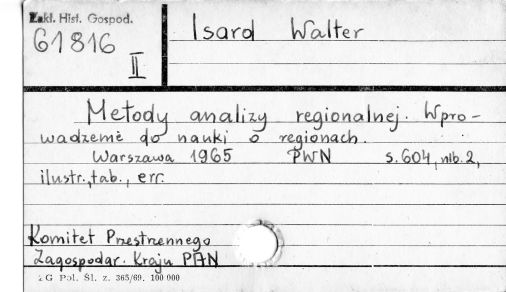 Zakł. Hist. Gospod.
61816
II
Isard Walter
Metody analizy regionalnej. Wpro-
wadzenie do nauki o regionach.
Warszawa 1965 PWN s. 604, nlb. 2,
ilustr., tab., err.
Komitet Przestrzennego
Zagospodar. Kraju PAN
ZG Pol. Śl. z. 365/69. 100 000